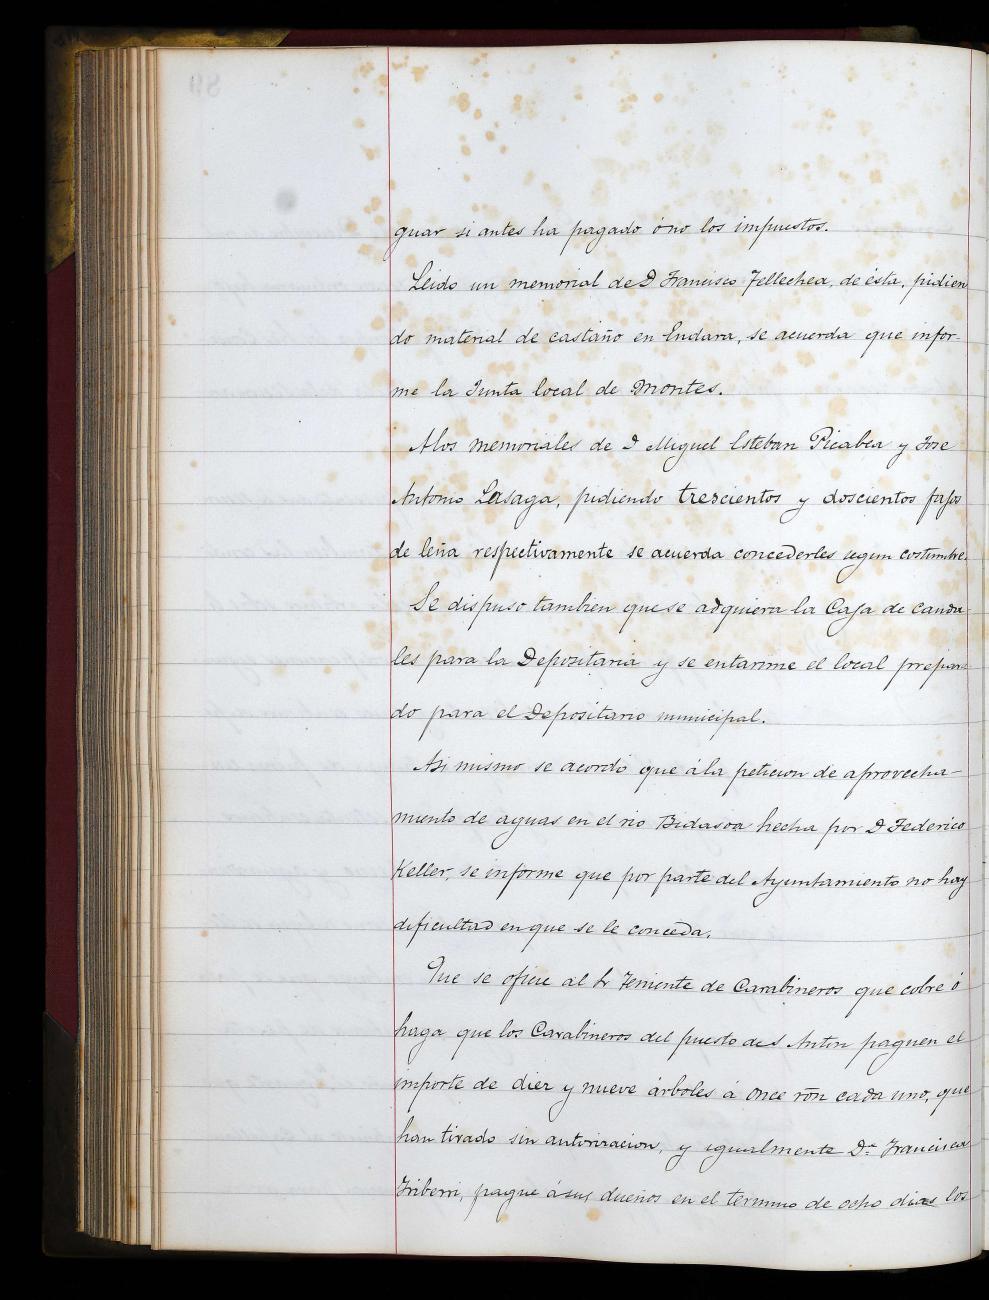 guar si antes ha pagado ó no los impuestos.
Leido un memorial de D Francisco Tellechea, de ésta, pidien
do material de castaño en Endara, se acuerda que infor-
me la Junta local de Montes.
A los memoriales de D Miguel Esteban Picabea y Jose
Antonio Lasaga, pidiendo trescientos y doscientos fajos
de leña respectivamente se acuerda concederles segun costumbre.
Se dispuso tambien que se adquiera la Caja de cauda-
les para la Depositaria y se entarime el local prepara-
do para el Depositario municipal.
Asi mismo se acordó que á la peticion de aprovecha-
miento de aguas en el rio Bidasoa hecha por D Federico
Keller, se informe que por parte del Ayuntamiento no hay
dificultad en que se le conceda.
Que se oficie al Sr Teniente de Carabineros que cobre ó
haga que los Carabineros del puesto de S Anton paguen el
importe de diez y nueve árboles á once rõn cada uno, que
han tirado sin autorizacion, y igualmente Dª Francisca
Iriberri, pague á sus dueños en el termino de ocho dias los